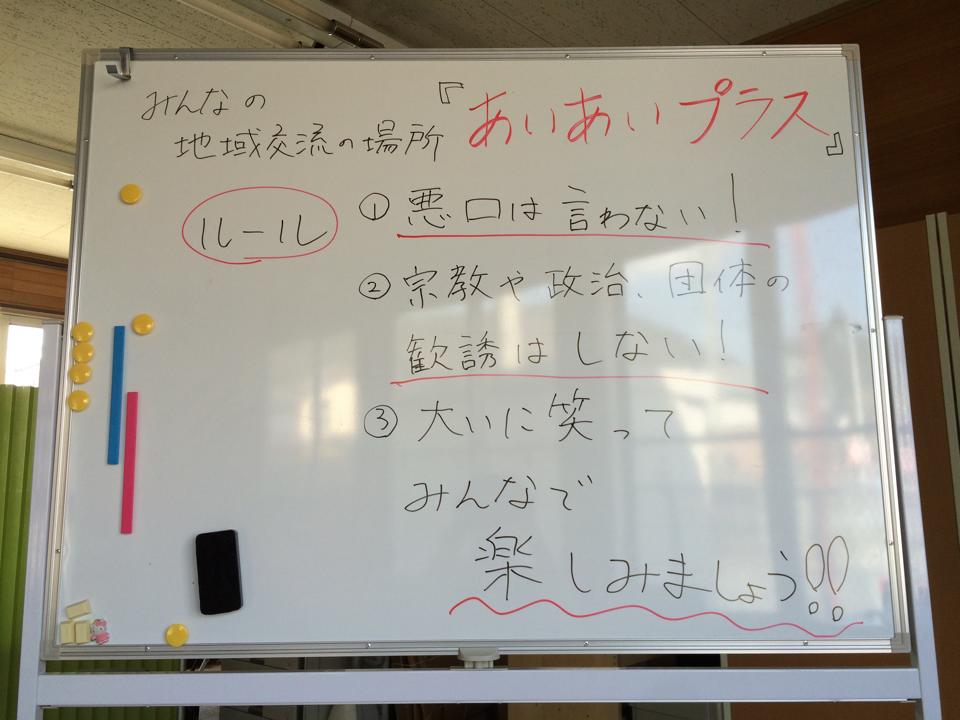 みんなの
地域交流の場所『あいあいプラス』
ルール
①悪口は言わない!
②宗教や政治、団体の
歓誘はしない!
③大いに笑って
みんなで
楽しみましょう!!